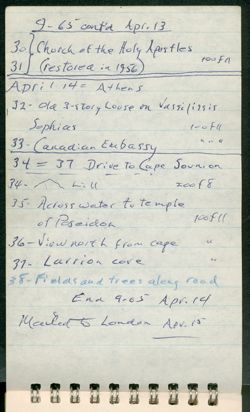 9-65 cont'd Apr. 13
30 Church of the Holy Apostles
31 (restored in 1956) 100 f 11
April 14 = Athens
32- Old 3-story house on Vassilissis
Sophias 100 f 11
33- Canadian Embassy " " "
34 = 37 Drive to Cape Sounion
34- hill 200 f 8
35- Across water to temple
of Poseidon 100 f 11
36- View north from cape "
37- Larrion cove "
38- Fields and trees along road
End 9-65 Apr. 14
Mailed to London Apr. 15